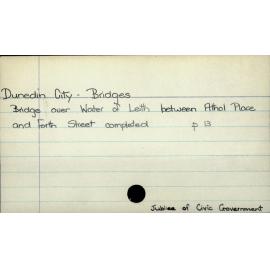 Dunedin City - Bridges
Bridge over Water of Leith between Athol Place
and Forth Street completed p 13
Jubilee of Civic Government